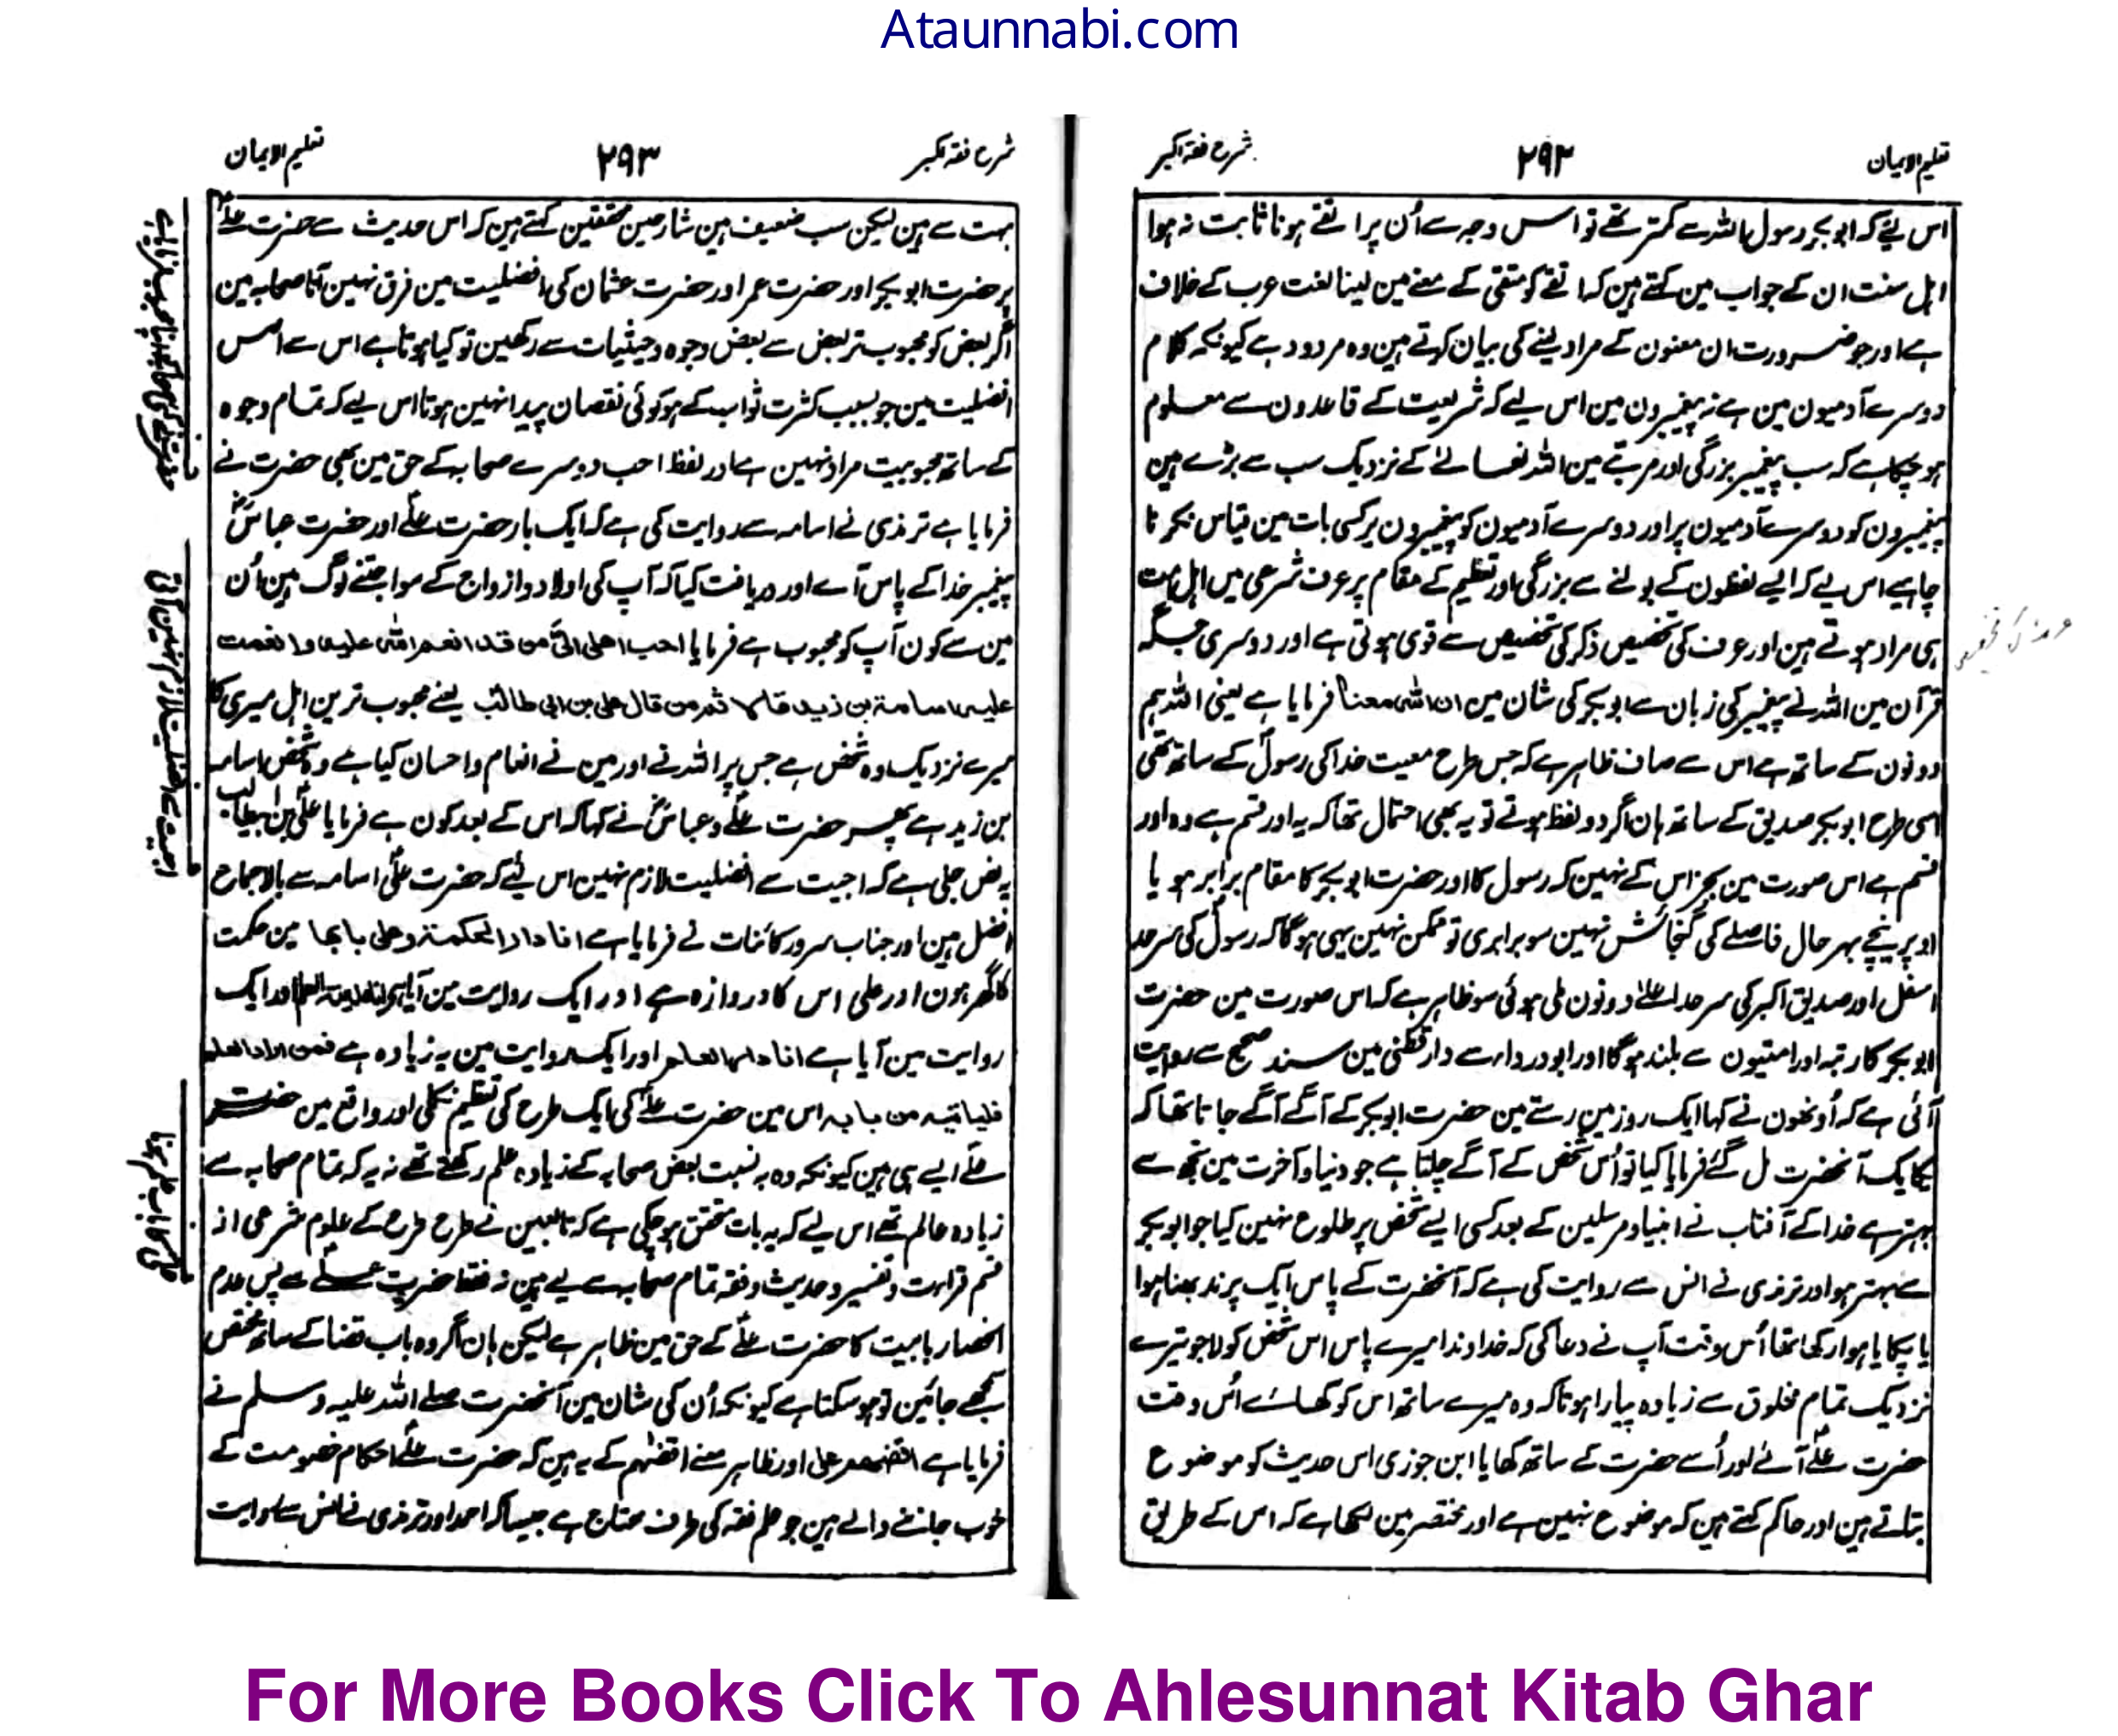 Ataunnabi.com
تعلیم الایمان ۲۹۲ شرح فقہ اکبر
اس لیے کہ ابوبکر رسول اللہ سے کمتر تھے تو اسس وجہ سے اُن پر اتقے ہونا ثابت نہ ہوا
اہل سنت ان کے جواب مین کہتے ہین کہ اتقے کو متقی کے معنے مین لینا لغت عرب کے خلاف
ہے اور جو ضرورت ان معنون کے مراد لینے کی بیان کرتے ہین وہ مردود ہے کیونکہ کلام
دوسرے آدمیون مین ہے نہ پیغمبرون مین اس لیے کہ شریعت کے قاعدون سے معلوم
ہو چکا ہے کہ سب پیغمبر بزرگی اور مرتبے مین اللہ تعالےٰ کے نزدیک سب سے بڑے ہین
پیغمبرون کو دوسرے آدمیون پر اور دوسرے آدمیون کو پیغمبرون پر کسی بات مین قیاس نکرنا
چاہیے اس لیے کہ ایسے لفظون کے بولنے سے بزرگی اور تعظیم کے مقام پر عرف شرعی میں اہل امت
ہی مراد ہوتے ہین اور عرف کی تخصیص ذکر کی تخصیص سے قوی ہوتی ہے اور دوسری جگہ
قرآن مین اللہ نے پیغمبر کی زبان سے ابوبکر کی شان مین ان اللہ معنا فرمایا ہے یعنی اللہ ہم
دونون کے ساتھ ہے اس سے صاف ظاہر ہے کہ جس طرح معیت خدا کی رسول کے ساتھ تھی
اسی طرح ابوبکر صدیق کے ساتھ ہان اگر دو لفظ ہوتے تو یہ بھی احتمال تھا کہ یہ اور قسم ہے وہ اور
قسم ہے اس صورت مین بجز اس کے نہین کہ رسول کا اور حضرت ابوبکر کا مقام برابر ہو یا
اوپر نیچے بہر حال فاصلے کی گنجائش نہین سو برابری تو ممکن نہین یہی ہوگا کہ رسول کی سرحد
اسفل اور صدیق اکبر کی سرحد اعلےٰ دونون ملی ہوئی سو ظاہر ہے کہ اس صورت مین حضرت
ابوبکر کا رتبہ اور امتیون سے بلند ہوگا اور ابودرداء سے دارقطنی مین سند صحیح سے روایت
آئی ہے کہ اُونھون نے کہا ایک روز مین رستے مین حضرت ابوبکر کے آگے آگے جاتا تھا کہ
یکایک آنحضرت مل گئے فرمایا کیا تو اُس شخص کے آگے چلتا ہے جو دنیا و آخرت مین تجھ سے
بہتر ہے خدا کے آفتاب نے انبیا و مرسلین کے بعد کسی ایسے شخص پر طلوع نہین کیا جو ابوبکر
سے بہتر ہو اور ترمذی نے انس سے روایت کی ہے کہ آنحضرت کے پاس ایک پرند بھنا ہوا
یا پکایا ہوا رکھا تھا اُس وقت آپ نے دعا کی کہ خداوندا میرے پاس اس شخص کو لا جو تیرے
نزدیک تمام مخلوق سے زیادہ پیارا ہو تاکہ وہ میرے ساتھ اس کو کھائے اُس وقت
حضرت علے آئے اور اُسے حضرت کے ساتھ کھایا ابن جوزی اس حدیث کو موضوع
بتاتے ہین اور حاکم کہتے ہین کہ موضوع نہین ہے اور مختصر مین لکھا ہے کہ اس کے طریق
شرح فقہ اکبر ۲۹۳ تعلیم الایمان
بہت سے ہین لیکن سب ضعیف ہین شارحین محققین کہتے ہین کہ اس حدیث سے حضرت علے
پر حضرت ابوبکر اور حضرت عمر اور حضرت عثمان کی افضلیت مین فرق نہین آتا صحابہ مین
اگر بعض کو محبوب تر بعض سے بعض وجوہ و حیثیات سے رکھین تو کیا ہوتا ہے اس سے اسس
افضلیت مین جو بسبب کثرت ثواب کے ہو کوئی نقصان پیدا نہین ہوتا اس لیے کہ تمام وجوہ
کے ساتھ محبوبیت مراد نہین ہے اور لفظ احب دوسرے صحابہ کے حق مین بھی حضرت نے
فرمایا ہے ترمذی نے اسامہ سے روایت کی ہے کہ ایک بار حضرت علے اور حضرت عباس
پیغمبر خدا کے پاس آے اور دریافت کیا کہ آپ کی اولاد و ازواج کے سوا جتنے لوگ ہین اُن
مین سے کون آپ کو محبوب ہے فرمایا احب اھلی الیّ من قد انعم اللہ علیہ وانعمت
علیہ اسامۃ بن زید قالا ثم من قال علی بن ابی طالب یعنے محبوب ترین اہل میری کا
میرے نزدیک وہ شخص ہے جس پر اللہ نے اور مین نے انعام و احسان کیا ہے وہ شخص اسامہ
بن زید ہے پھر حضرت علے و عباس نے کہا کہ اس کے بعد کون ہے فرمایا علی بن ابیطالب
یہ نص جلی ہے کہ احبیت سے افضلیت لازم نہین اس لیے کہ حضرت علی اسامہ سے بالاجماع
افضل ہین اور جناب سرور کائنات نے فرمایا ہے انا دار الحکمۃ وعلی بابھا مین حکمت
کا گھر ہون اور علی اس کا دروازہ ہے اور ایک روایت مین آیا ہے انا مدینۃ العلم اور ایک
روایت مین آیا ہے انا دار العلم اور ایک روایت مین یہ زیادہ ہے فمن اراد العلم
فلیاتیہ من بابہ اس مین حضرت علے کی ایک طرح کی تعظیم نکلی اور واقع مین حضرت
علے ایسے ہی ہین کیونکہ وہ بہ نسبت بعض صحابہ کے زیادہ علم رکھتے تھے نہ یہ کہ تمام صحابہ سے
زیادہ عالم تھے اس لیے کہ یہ بات متحقق ہو چکی ہے کہ تابعین نے طرح طرح کے علوم شرعی از
قسم قراءت و تفسیر و حدیث و فقہ تمام صحابہ سے لیے ہین نہ فقط حضرت علے سے پس عدم
انحصار بابیت کا حضرت علے کے حق مین ظاہر ہے لیکن ہان اگر وہ باب قضا کے ساتھ مختص
سمجھے جائین تو ہو سکتا ہے کیونکہ اُن کی شان مین آنحضرت صلے اللہ علیہ وسلم نے
فرمایا ہے اقضٰھم علی اور ظاہر معنے اقضٰہم کے یہ ہین کہ حضرت علے احکام خصومت کے
خوب جاننے والے ہین جو علم فقہ کی طرف محتاج ہے جیسا کہ احمد اور ترمذی نے انس سے روایت
احبیت سے افضلیت لازم نہین آتی
علی کا باب علم ہونا
For More Books Click To Ahlesunnat Kitab Ghar